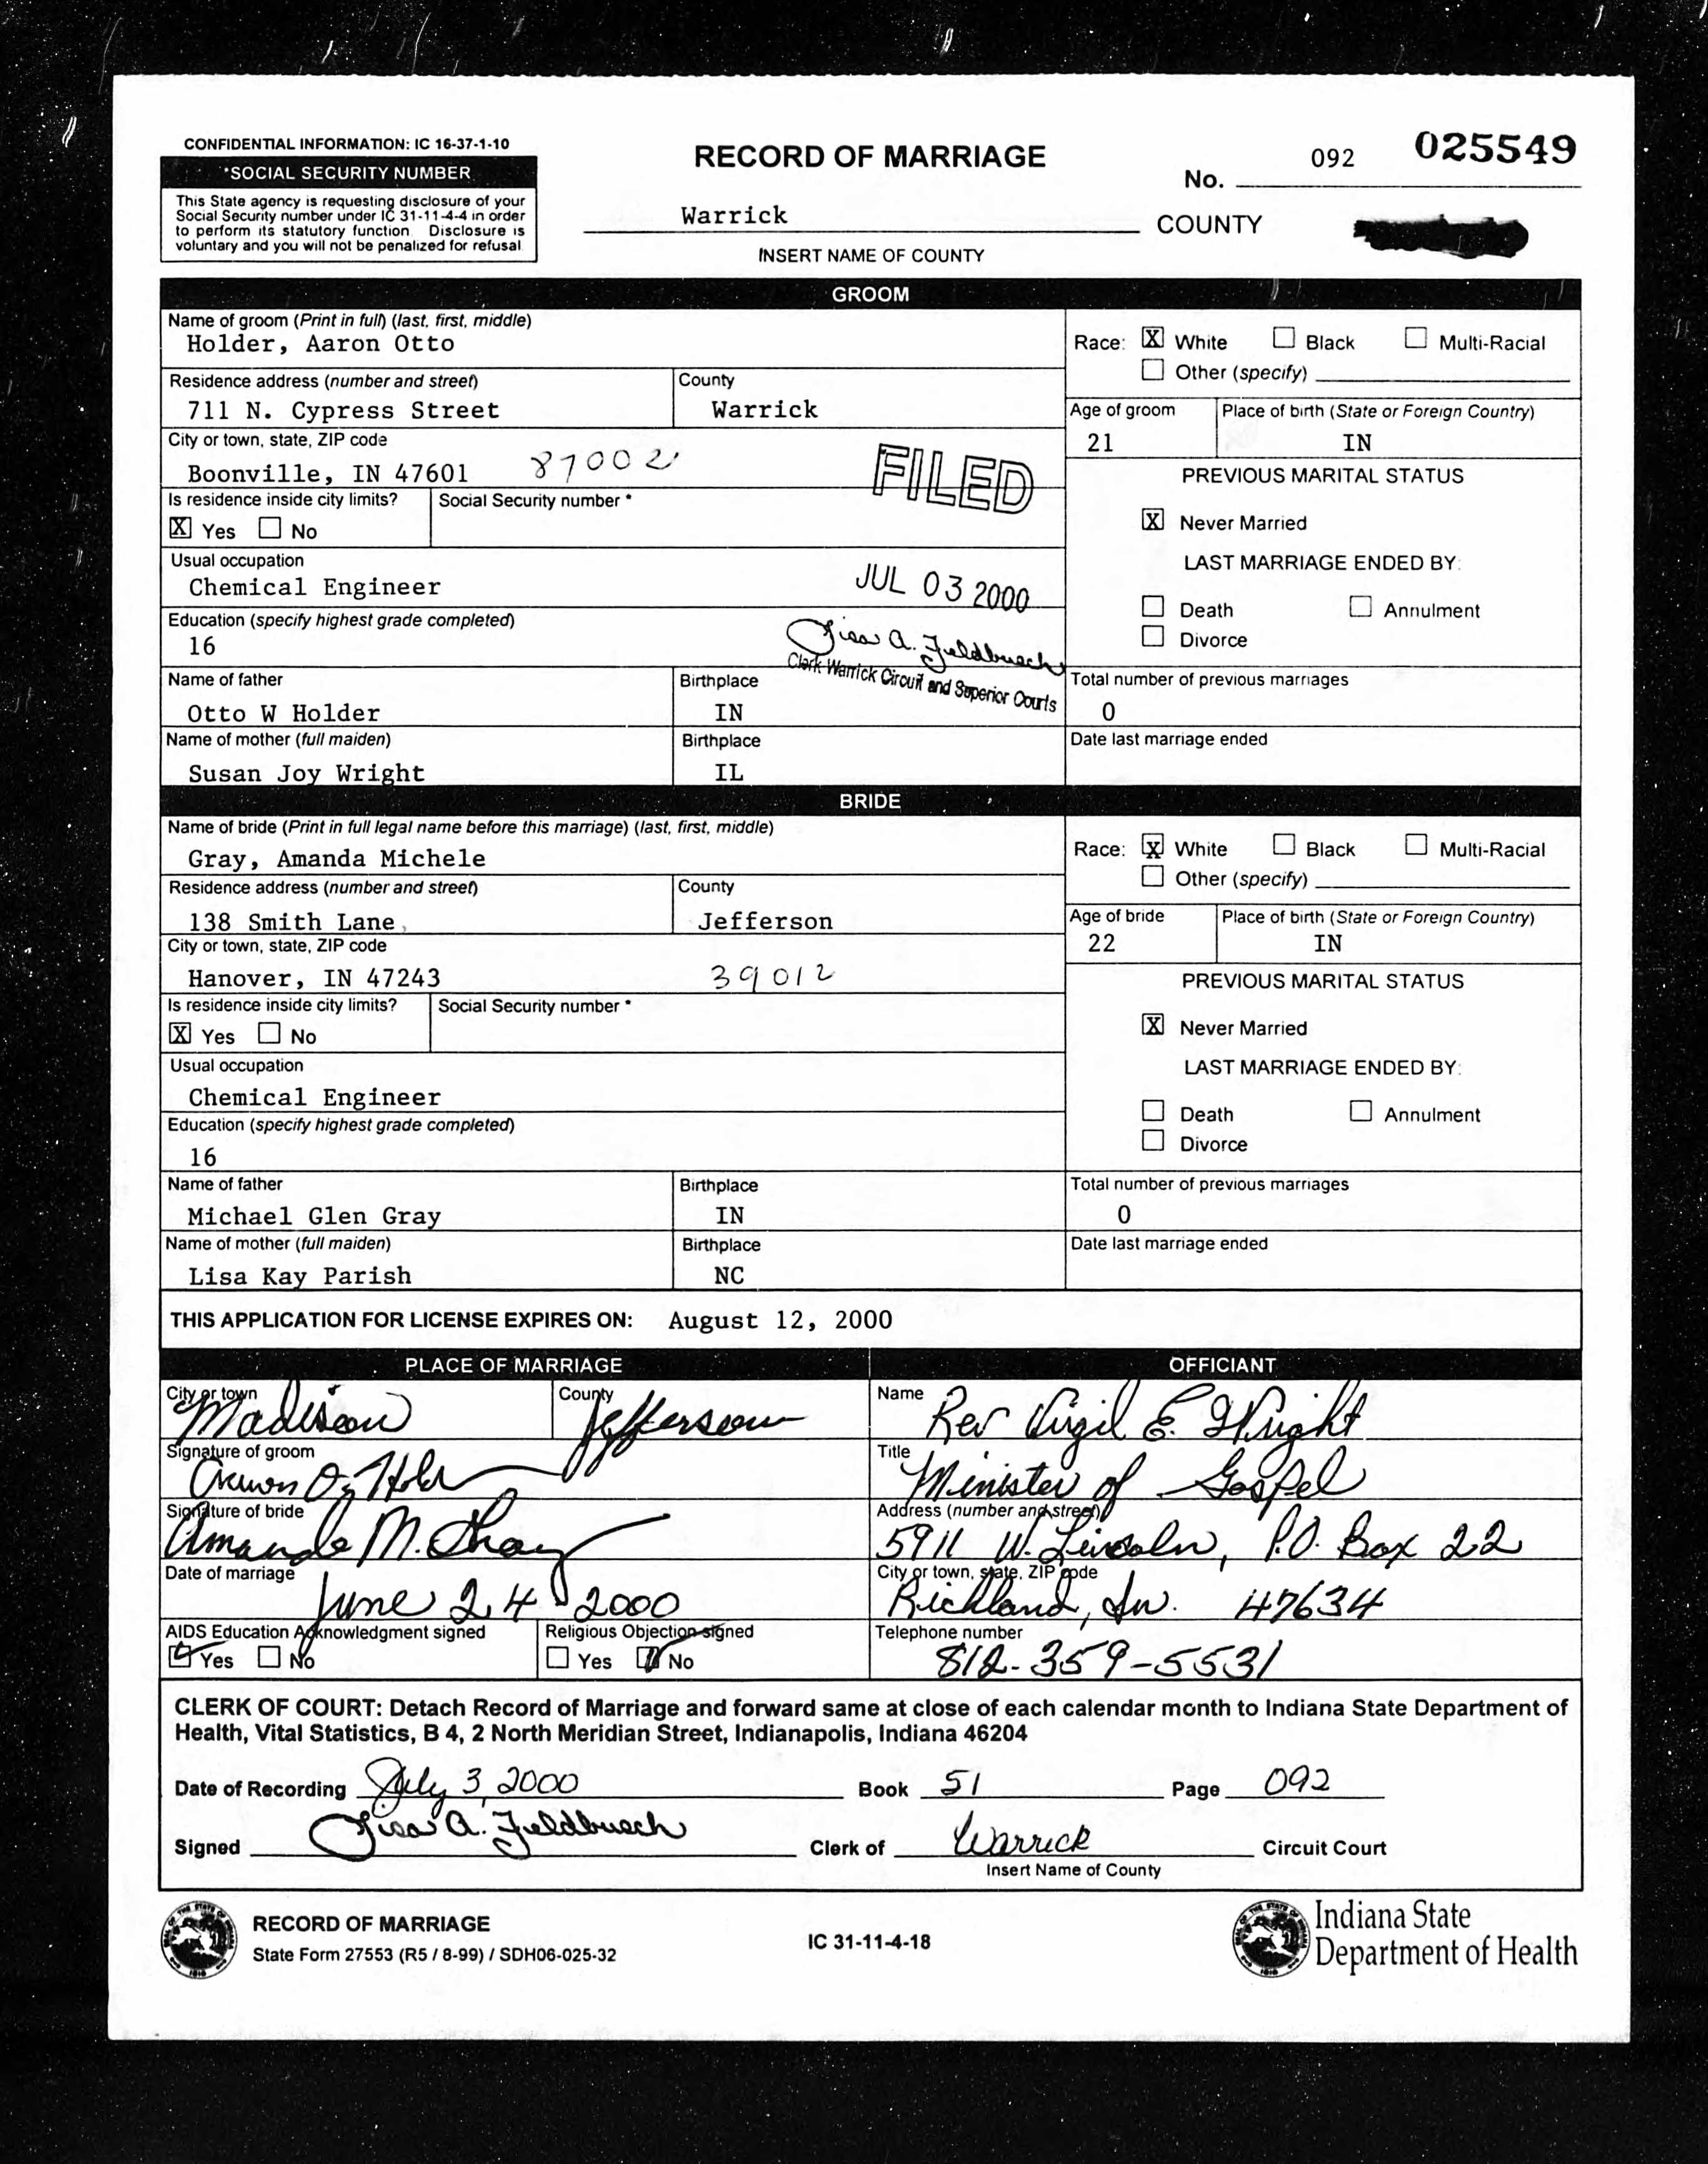 CONFIDENTIAL INFORMATION: IC 16-37-1-10
*SOCIAL SECURITY NUMBER
This State agency is requesting disclosure of your
Social Security number under IC 31-11-4-4 in order
to perform its statutory function. Disclosure is
voluntary and you will not be penalized for refusal.
RECORD OF MARRIAGE
No. 092 025549
Warrick COUNTY
INSERT NAME OF COUNTY
GROOM
Name of groom (Print in full) (last, first, middle)
Holder, Aaron Otto
Race: X White Black Multi-Racial
Other (specify)
Residence address (number and street) County
711 N. Cypress Street Warrick
Age of groom Place of birth (State or Foreign Country)
21 IN
City or town, state, ZIP code
Boonville, IN 47601 87002
FILED
PREVIOUS MARITAL STATUS
Is residence inside city limits? Social Security number *
X Yes No
X Never Married
Usual occupation
Chemical Engineer
JUL 03 2000
LAST MARRIAGE ENDED BY:
Death Annulment
Divorce
Education (specify highest grade completed)
16
Lisa A. Feldbusch
Clerk Warrick Circuit and Superior Courts
Name of father Birthplace Total number of previous marriages
Otto W Holder IN 0
Name of mother (full maiden) Birthplace Date last marriage ended
Susan Joy Wright IL
BRIDE
Name of bride (Print in full legal name before this marriage) (last, first, middle)
Gray, Amanda Michele
Race: X White Black Multi-Racial
Other (specify)
Residence address (number and street) County
138 Smith Lane Jefferson
Age of bride Place of birth (State or Foreign Country)
22 IN
City or town, state, ZIP code
Hanover, IN 47243 39012
PREVIOUS MARITAL STATUS
Is residence inside city limits? Social Security number *
X Yes No
X Never Married
Usual occupation
Chemical Engineer
LAST MARRIAGE ENDED BY:
Death Annulment
Divorce
Education (specify highest grade completed)
16
Name of father Birthplace Total number of previous marriages
Michael Glen Gray IN 0
Name of mother (full maiden) Birthplace Date last marriage ended
Lisa Kay Parish NC
THIS APPLICATION FOR LICENSE EXPIRES ON: August 12, 2000
PLACE OF MARRIAGE OFFICIANT
City or town County Name
Madison Jefferson Rev Virgil E. Wright
Signature of groom Title
Minister of Gospel
Signature of bride Address (number and street)
Amanda M. Gray 5911 W. Lincoln, P.O. Box 22
Date of marriage City or town, state, ZIP code
June 24 2000 Richland, In. 47634
AIDS Education Acknowledgment signed Religious Objection signed Telephone number
Yes No Yes No 812-359-5531
CLERK OF COURT: Detach Record of Marriage and forward same at close of each calendar month to Indiana State Department of
Health, Vital Statistics, B 4, 2 North Meridian Street, Indianapolis, Indiana 46204
Date of Recording July 3, 2000 Book 51 Page 092
Signed Lisa A. Feldbusch Clerk of Warrick Circuit Court
Insert Name of County
RECORD OF MARRIAGE
State Form 27553 (R5 / 8-99) / SDH06-025-32
IC 31-11-4-18
Indiana State
Department of Health